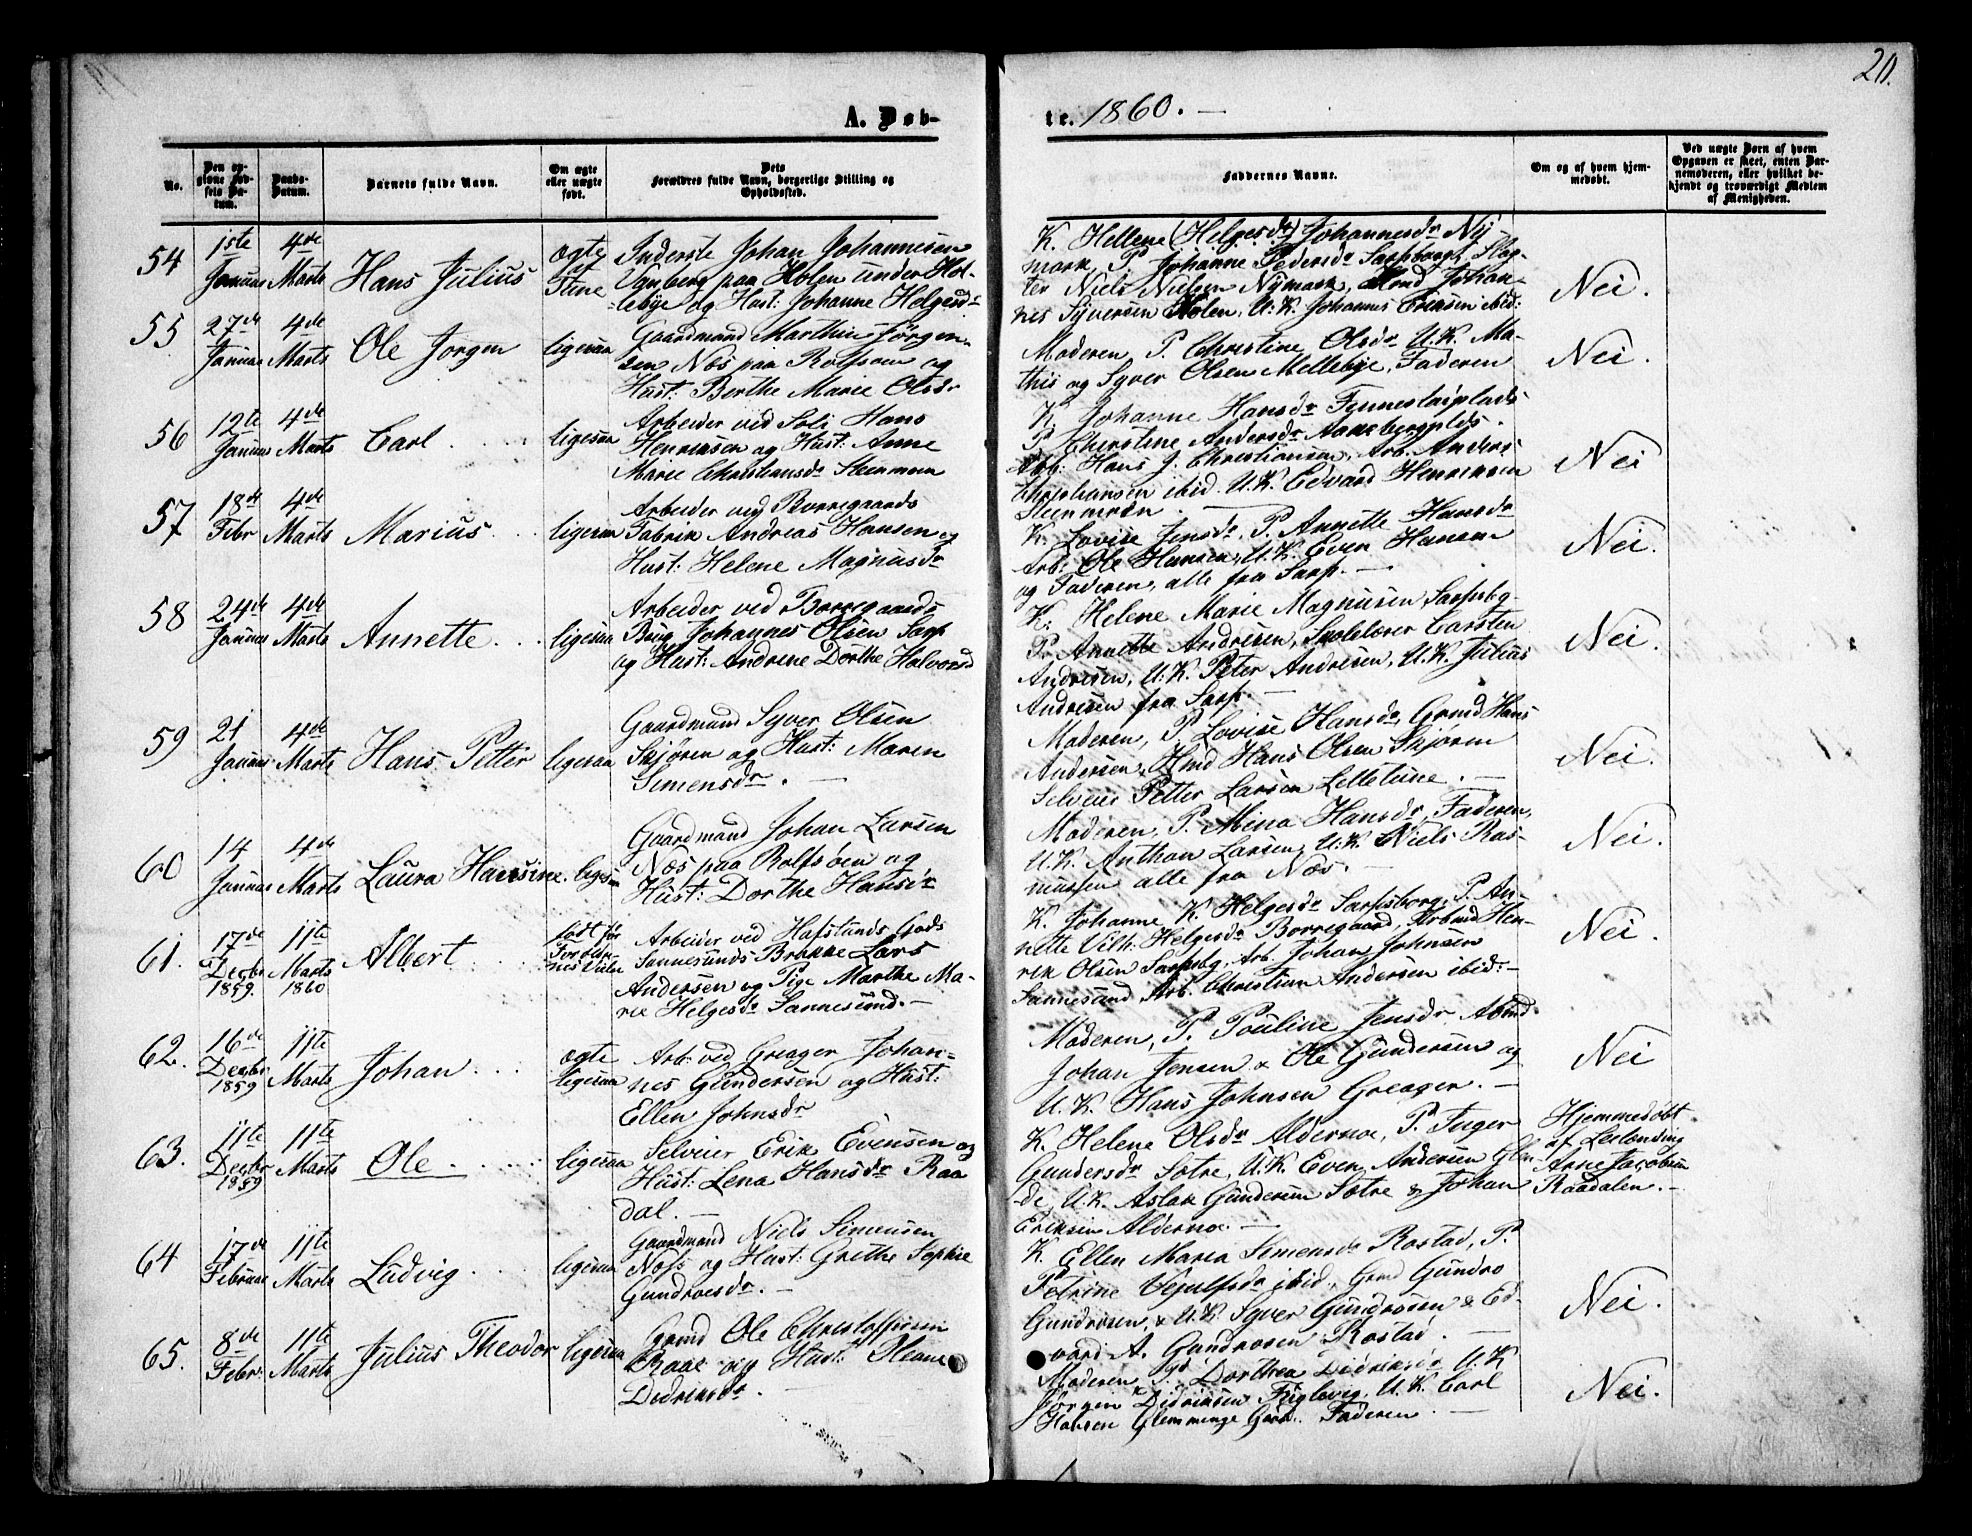 20.
A. Døb-
te. 1860. —
No.
Den op-
givne Fød-
sels Da-
tum.
Daabs-
Datum.
Barnets fulde Navn.
Om ægte
eller uægte
født.
Dets
Forældres fulde Navn, borgerlige Stilling og
Opholdssted.
Faddernes Navne.
Om og af hvem hjem-
medøbt.
Ved uægte Børn af hvem
Opgaven er skeet, enten Bar-
nemoderen, eller hvilket be-
kjendt og troværdigt Medlem
af Menigheden.
54
1ste
Januar
4de
Marts
Hans Julius
ægte
Inderste Johan Johannesen
paa Holen under Hol-
lebye og Hust: Johanne Helgesdr
K. Hellene (Helgesdr) Johannesdr Ny-
mark, P. Johanne Pedersdr Sarpsborg, Slag-
ter Niels Nielsen Nymark, Johan-
nes Syversen Holen, U.K. Johannes Eriksen ibid:
Nei.
55
27de
Januar
4de
Marts
Ole Jorgen
ligesaa
Gaardmand Marthin Jörgen-
sen Næs paa Rolfsøen og
Hust: Berthe Marie Olsdr
Moderen, P. Christine Olsdr U.K. Ma-
this og Syver Olsen Mellebye, Faderen
Nei.
56
12te
Januar
4de
Marts
Carl
ligesaa
Arbeider ved Soli Hans
Henriksen og Hust: Anne
Marie Christiansdr Steenmoen
K. Johanne Hansdr
P. Christine Andersdr
Arb: Hans J. Christiansen, Arb. Anders
Christiansen ibid. U.K. Edvard Henriksen
Steenmoen.
Nei
57
18de
Febr
4de
Marts
Marius
ligesaa
Arbeider ved Borregaards
Fabrik Andreas Hansen og
Hust: Helene Magnusdr
K. Lovise Jensdr, P. Annette Hansdr
Arb: Ole Hansen, U.K. Even Hansen
og Faderen, alle fra Sarp. —
Nei.
58
24de
Januar
4de
Marts
Annette
ligesaa
Arbeider ved Borregaards
Brug Johannes Olsen Sarp
og Hust: Andrine Dorthe Halvorsd
K. Helene Marie Magnusen, Sarpsbg.
P. Annette Andresen, Skolelærer Carsten
Andresen, U.K. Peter Andresen, U.K. Julius
Andresen fra Sarp. —
Nei.
59
21
Januar
4de
Marts
Hans Petter
ligesaa
Gaardmand Syver Olsen
Skjøren og Hust: Maren
Simensdr. —
Moderen, P. Lovise Hansdr, Grmd Hans
Andersen, Hans Olsen Skjøren
Selveier Petter Larsen Lilletune. —
Nei.
60
14
Januar
4de
Marts
Laura Hansine
ligesaa
Gaardmand Johan Larsen
Næs paa Rolfsøen og
Hust: Dorthe Hansdr
Moderen, P. Mina Hansdr, Faderen,
U.K. Anthon Larsen, U.K. Niels Ras-
mussen alle fra Næs. —
Nei.
61.
17de
Decbr
1859.
11te
Marts
1860
Albert
født før
Forældre-
nes
Arbeider ved Hafslunds Gods
Sannesunds Brakke Lars
Andersen og Pige Marthe Ma-
rie Helgesdr Sannesund. —
K. Johanne K. Helgesdr Sarpsborg, P. An-
nette Vilh. Helgesdr Borregaard, Hen-
rik Olsen Sarpsbg. Arb. Johan Johnsen
Sannesund Arb. Christian Andersen ibid: —
Nei.
62.
16de
Decbr
1859
11te
Marts
Johan
ægte
ligesaa
Arb. ved Greager Johan-
nes Gundersen og Hust:
Ellen Johnsdr
Moderen, P. Pouline Jensdr
Johan Jensen & Ole Gundersen og
U.K. Hans Johnsen Greager. —
Nei
63.
11te
Decbr
1859
11te
Marts
Ole.
ligesaa
Selveier Erik Evensen og
Hust: Lena Hansdr Raa
dal. —
K. Helene Olsdr Aldernæ, P. Inger
Gundersdr Sotre, U.K. Even Andersen Glen-
de, U.K. Aslak Gundersen Sotre & Johan
Eriksen Aldernæ. —
Hjemmedøbt
af Leilending
Arne Jacobsen
Raadalen. —
64
17de
Februar
11te
Marts
Ludvig
ligesaa
Gaardmand Niels Simensen
og Hust: Grethe Sophie
Gundroesdr. —
K. Ellen Maria Simensdr Rostad, P.
Petrine ibid, Grmd Gundro
Gundrosen, & U.K. Syver Gundrosen & Ed-
vard A. Gundrosen Rostad. —
Nei.
65.
8de
Febr.
11te
Marts
Julius Theodor
ligesaa
Grmd Ole Christoffersen
Raae og Hust:
Didriksdr. —
Moderen P. Dorthea Didriksdr U.K
Jörgen Didriksen Fuglevig, U.K. Carl
Hansen Glemminge Faderen. —
Nei.